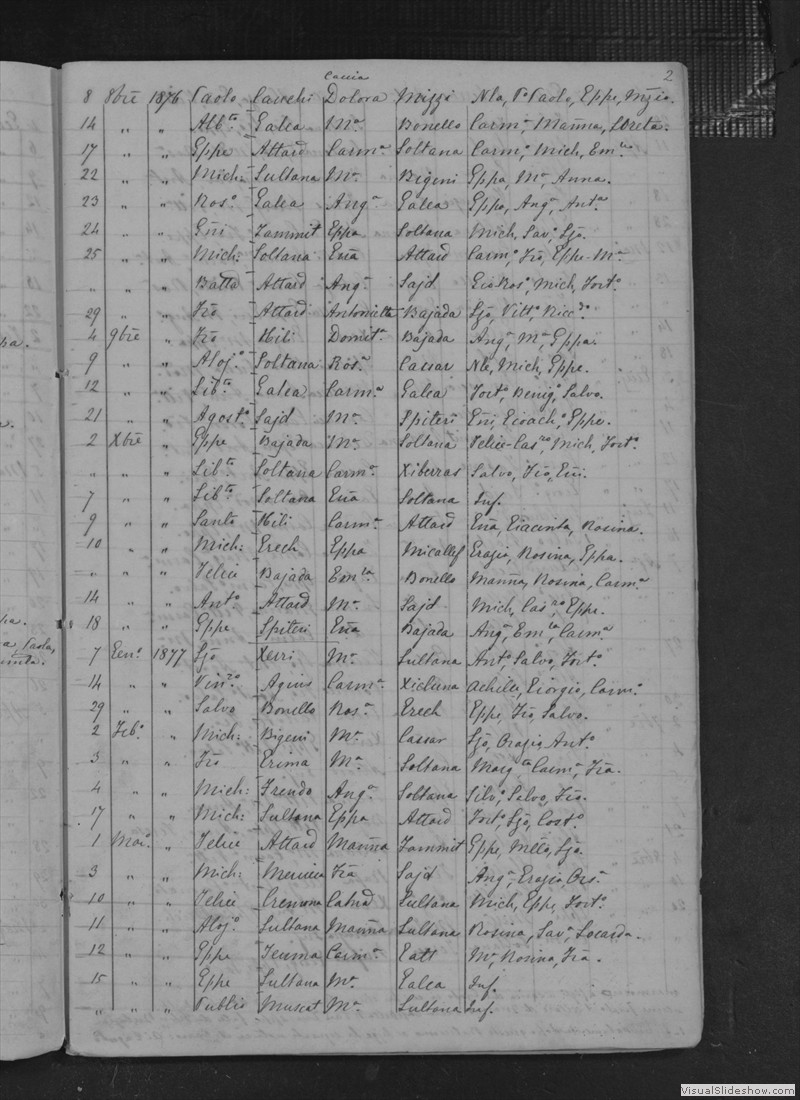 Caccia 2
8 8bre 1876 Paolo Cauchi Dolora Mizzi Nla, Pa Paolo, Eppe, Mzio.
14 „ „ Albto Galea Ma Bonello Carma, Mañna, Loreta.
17 „ „ Eppe Attard Carma Soltana Carmo, Mich, Emla.
22 „ „ Mich: Sultana Ma Bigeni Eppa, Ma, Anna.
23 „ „ Roso Galea Anga Galea Eppa, Anga, Anta
24 „ „ Eñi Zammit Eppa Soltana Mich, Savo, Sjo.
25 „ „ Mich: Soltana Eña Attard Carmo, Fro, Eppe-Ma
„ „ „ Batta Attard Anga Sajd Roso, Mich, Forto.
29 „ „ Fro Attard Antonietta Bajada Sjo, Vitto, Riccdo.
4 9bre „ Fro Hili Domita Bajada Anga, Ma, Eppa.
9 „ „ Alojo Soltana Rosa Cassar Nla, Mich, Eppe.
12 „ „ Libto Galea Carma Galea Forto, Benigo, Salvo.
21 „ „ Agosto Sajd Ma Spiteri Eñi, Gioacho, Eppe.
2 Xbre „ Eppe Bajada Ma Soltana Felice-Casro, Mich, Forto.
„ „ „ Libto Soltana Carma Xiberras Salvo, Fro, Eñi.
7 „ „ Libto Soltana Eña Soltana Inf.
9 „ „ Santo Hili Carma Attard Eña, Giacinta, Rosina.
10 „ „ Mich: Grech Eppa Micallef Grazia, Rosina, Eppa.
„ „ „ Felice Bajada Emla Bonello Mañna, Rosina, Carma
14 „ „ Anto Attard Ma Sajd Mich, Casro, Eppe.
18 „ „ Eppe Spiteri Eña Bajada Anga, Emla, Carma
7 Geno 1877 Sjo Xerri Ma Sultana Anto, Salvo, Forto.
14 „ „ Vinzo Agius Carma Xicluna Achille, Giorgio, Carmo.
29 „ „ Salvo Bonello Rosa Grech Eppe, Fro, Salvo.
2 Febo „ Mich: Bigeni Ma Cassar Sjo, Orazio, Anto.
3 „ „ Fro Grima Ma Soltana Margta, Carma, Fra.
4 „ „ Mich: Frendo Anga Soltana Silvo, Salvo, Fro.
17 „ „ Mich: Sultana Eppa Attard Forto, Sjo, Costo.
1 Maro. „ Felice Attard Mañna Zammit Eppe, Mllo, Sjo.
3 „ „ Mich: Mercieca Fra Sajd Anga, Grazia, Orsa
10 „ „ Felice Cremona Catnd Sultana Mich, Eppe, Forto.
11 „ „ Alojo Sultana Mañna Sultana Rosina, Sava, Locarda.
12 „ „ Eppe Teuma Carma Gatt Ma Rosina, Fra.
15 „ „ Eppe Sultana Ma Galea Inf.
„ „ „ Publio Muscat Ma Sultana Inf.
VisualSlideshow.com